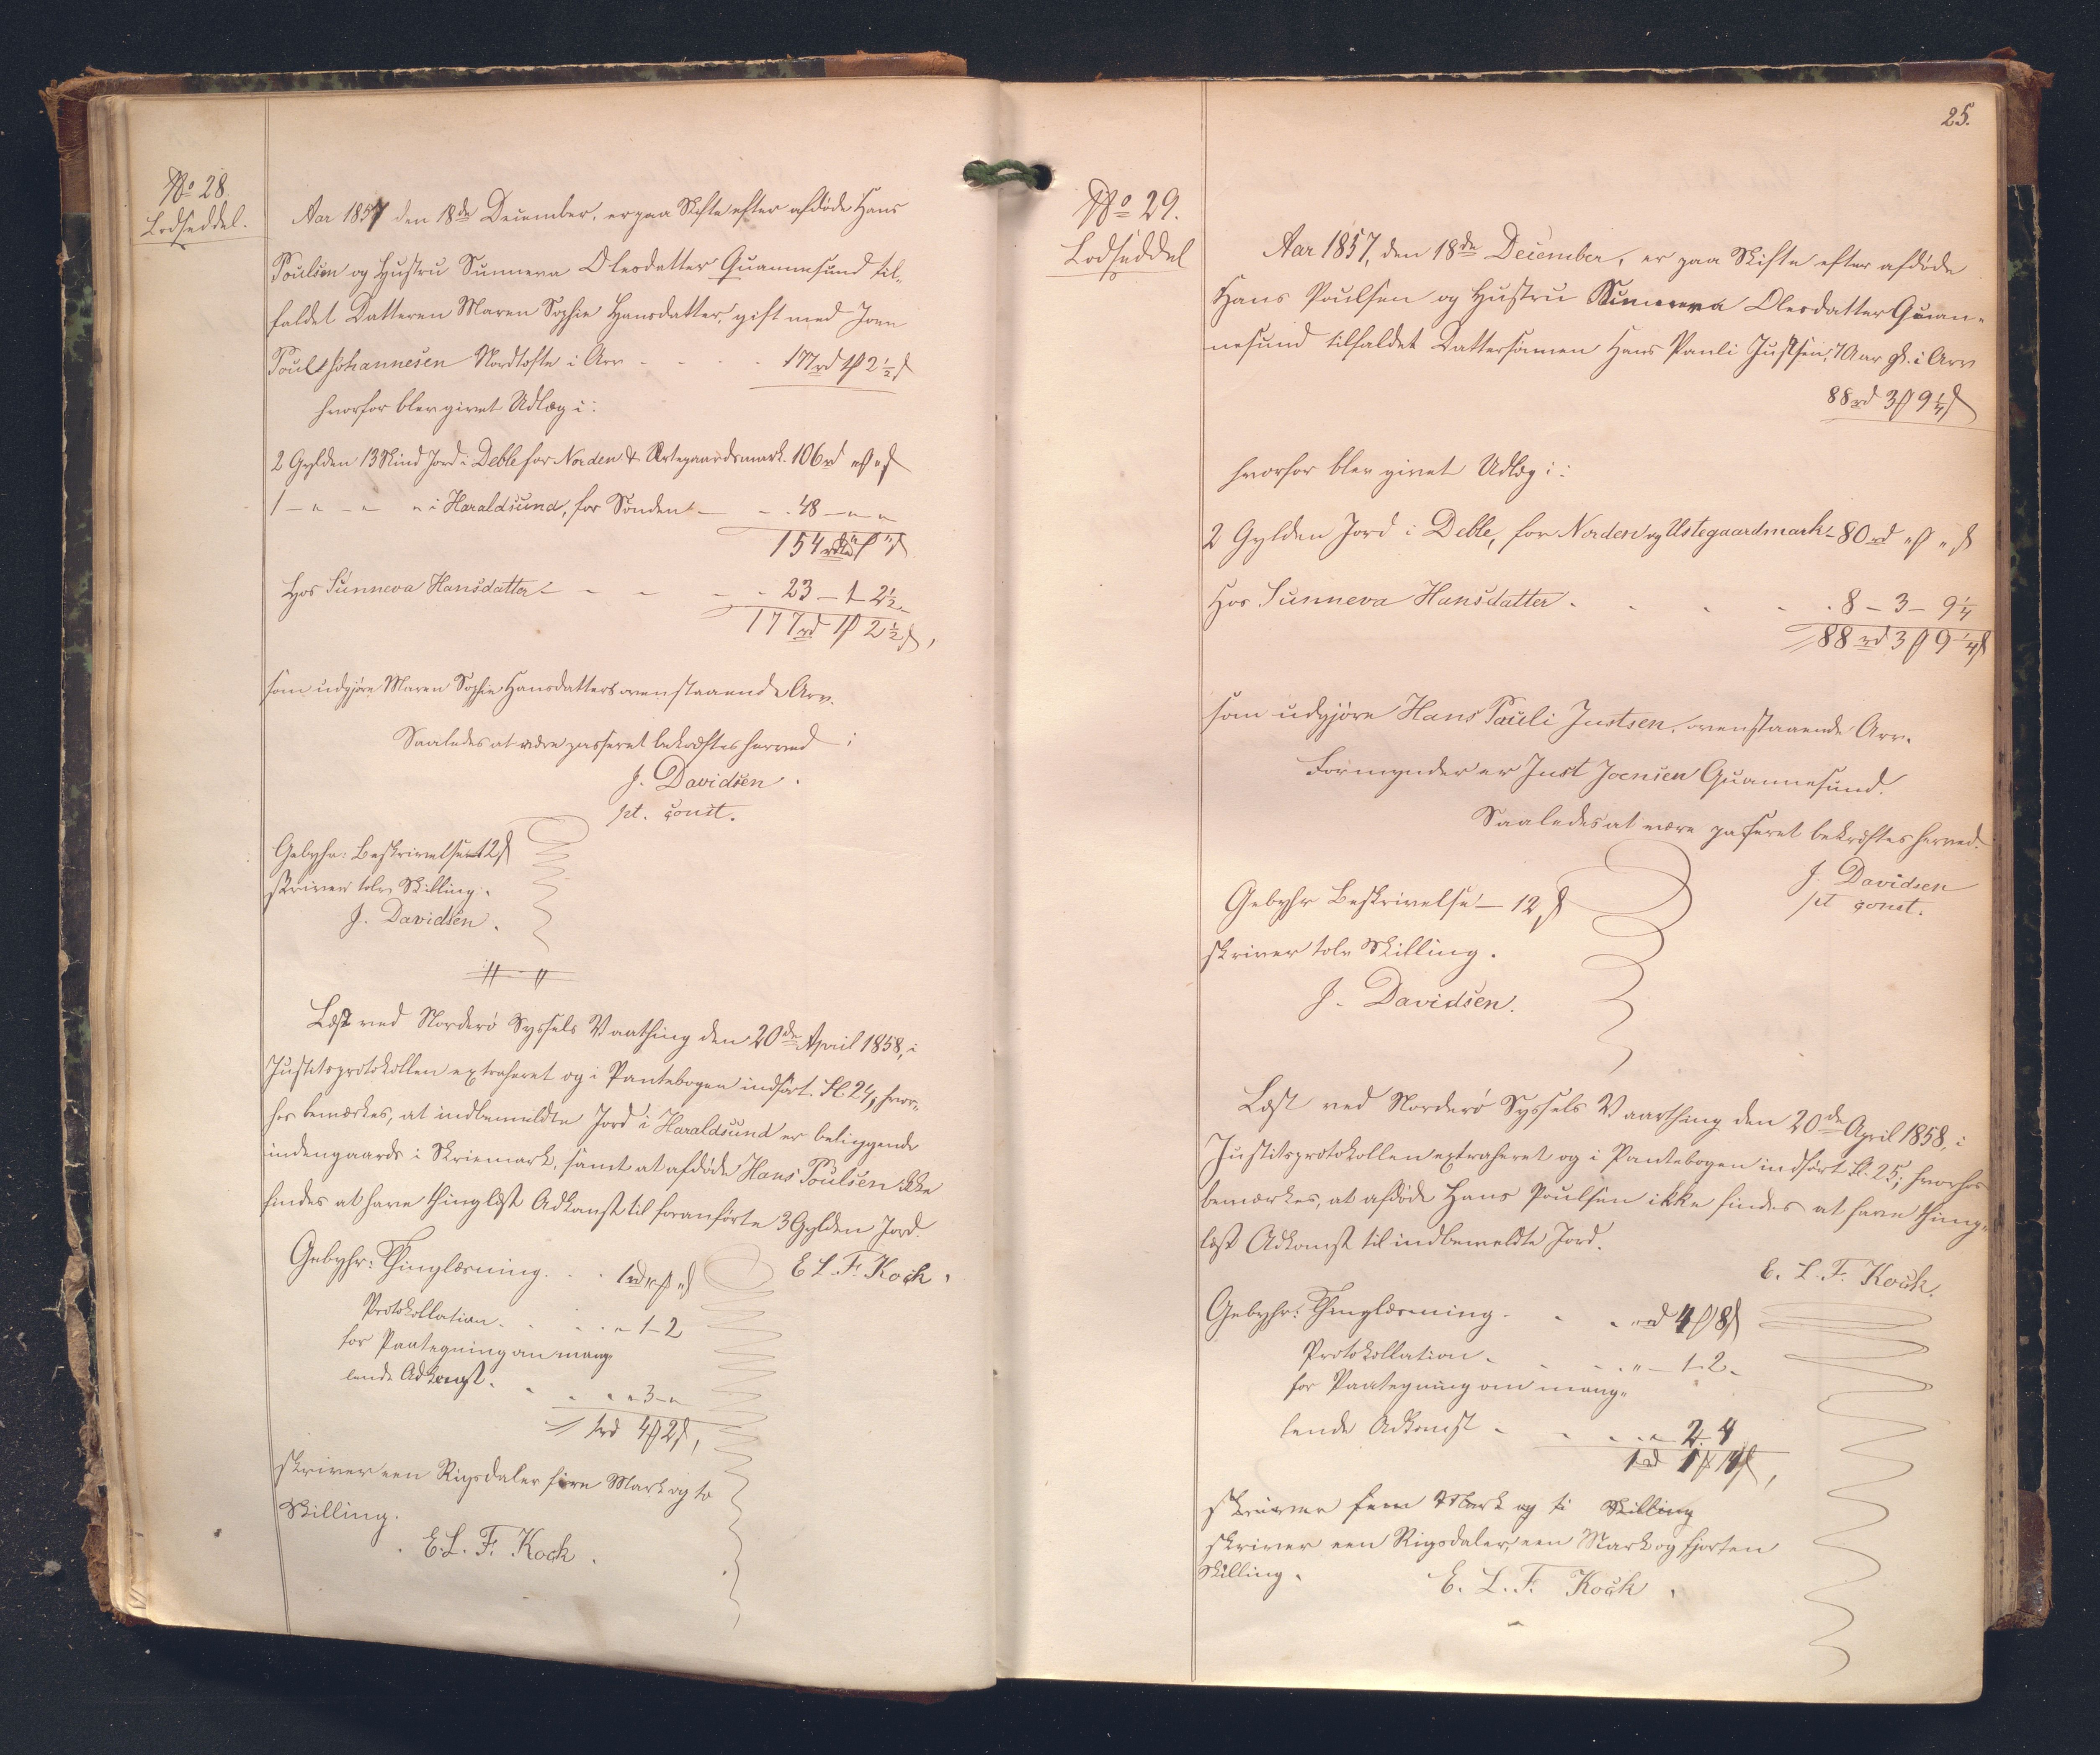 No 28.
Lodseddel.
Aar 1857 den 18de December, er paa Skifte efter afdøde Hans
Poulsen og Hustru Sunneva Olesdatter Quannesund til-
faldet Datteren Maren Sophie Hansdatter, gift med Joen
Poul Johannesen Nordtofte i Arv - - - 177rd 1ß 2½ß
hvorfor blev givet Udlæg i:
2 Gylden 13 Skind Jord i Deble for Norden & Ústegaardsmark. 106rd " "
1 - " - " - " i Haraldsund, for Sønden - - - 48 - " "
154rd " "
Hos Sunneva Hansdatter - - - - 23 - 1 - 2½
177rd 1 2½ß,
som udgjøre Maren Sophie Hansdatters ovenstaaende Arv.
Saaledes at være passeret bekræftes herved
J. Davidsen.
pt. const.
Gebyhr: Beskrivelse 12ß
skriver tolv Skilling.
J. Davidsen.
Læst ved Norderø Syssels Vaarthing den 20de April 1858, i
Justitsprotokollen extraheret og i Pantebogen indført Fl 24; hvor-
hos bemærkes, at indbemeldte Jord i Haraldsund er beliggende
indengaards i Skriemark, samt at afdøde Hans Poulsen ikke
findes at have thinglæst Adkomst til foranførte 3 Gylden Jord.
E. L. F. Koch.
Gebyhr: Thinglæsning. . . 1rd " "
Protokollation . . . . " 1 - 2
for Paategning om mang-
lende Adkomst. . . . " 3 - "
1rd 4 2ß,
skriver een Rigsdaler fire Mark og to
Skilling.
E. L. F. Koch.
25.
No 29.
Lodseddel
Aar 1857, den 18de December, er paa Skifte efter afdøde
Hans Poulsen og Hustru Sunneva Olesdatter Quan-
nesund tilfaldet Dattersønnen Hans Pauli Justsen, 7 Aar gl. i Arv
88rd 3 9¼ß
hvorfor blev givet Udlæg i:
2 Gylden Jord i Deble, for Norden og Ustegaardmark - 80rd " "
Hos Sunneva Hansdatter . - - - 8 - 3 - 9¼
88rd 3 9¼ß
som udgjøre Hans Pauli Justsen, ovenstaaende Arv.
Formynder er Just Joensen Quannesund.
Saaledes at være passeret bekræftes herved.
J. Davidsen
pt const.
Gebyhr Beskrivelse - 12ß
skriver tolv Skilling.
J. Davidsen.
Læst ved Norderø Syssels Vaarthing den 20de April 1858, i
Justitsprotokollen extraheret og i Pantebogen indført Fl. 25; hvorhos
bemærkes, at afdøde Hans Poulsen ikke findes at have thing-
læst Adkomst til indbemeldte Jord.
E. L. F. Koch.
Gebyhr: Thinglæsning. - - "rd 4 8ß
Protokollation - - - " - 1 - 2 -
for Paategning om mang-
lende Adkomst - - - " 2. 4
1rd 1 14ß,
skriver fem Mark og ti Skilling
skriver een Rigsdaler, een Mark og fjorten
Skilling.
E. L. F. Koch.